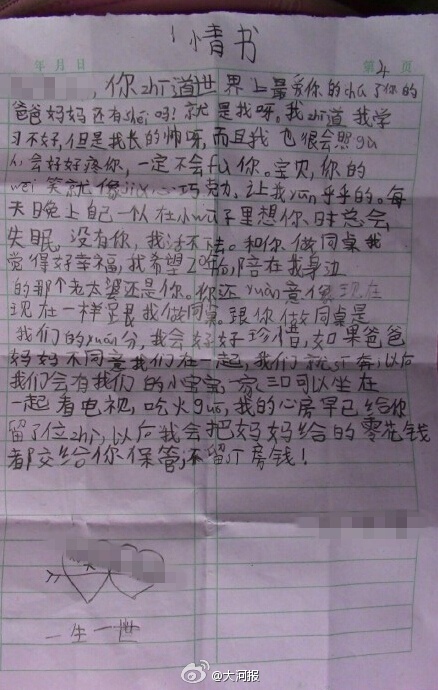 情书
年 月 日
第4页
，你zhī道世界上最爱你的chú了你的
爸爸妈妈还有shéi吗！就是我呀。我zhī道我学
习不好，但是我长的帅呀，而且我也很会照gù
人，会好好疼你，一定不会fù你。宝贝，你的
wēi笑就像jiā心巧克力，让我yūn乎乎的。每
天晚上自己一个人在小wū子里想你，时总会
失眠，没有你，我活不下去。和你做同桌我
觉得好幸福，我希望20年后，陪在我身边
的那个老太婆还是你。你还yuàn意像现在
现在一样是跟我做同桌。跟你做同桌是
我们的yuán分，我会好好珍惜，如果爸爸
妈妈不同意我们在一起，我们就ㄒ奔，以后
我们会有我们的小宝宝，一家三口可以坐在
一起看电视，吃火guō，我的心房早已给你
留了位zhì，以后我会把妈妈给的零花钱
都交给你保管，不留ㄒ房钱！
一生一世
@大河报